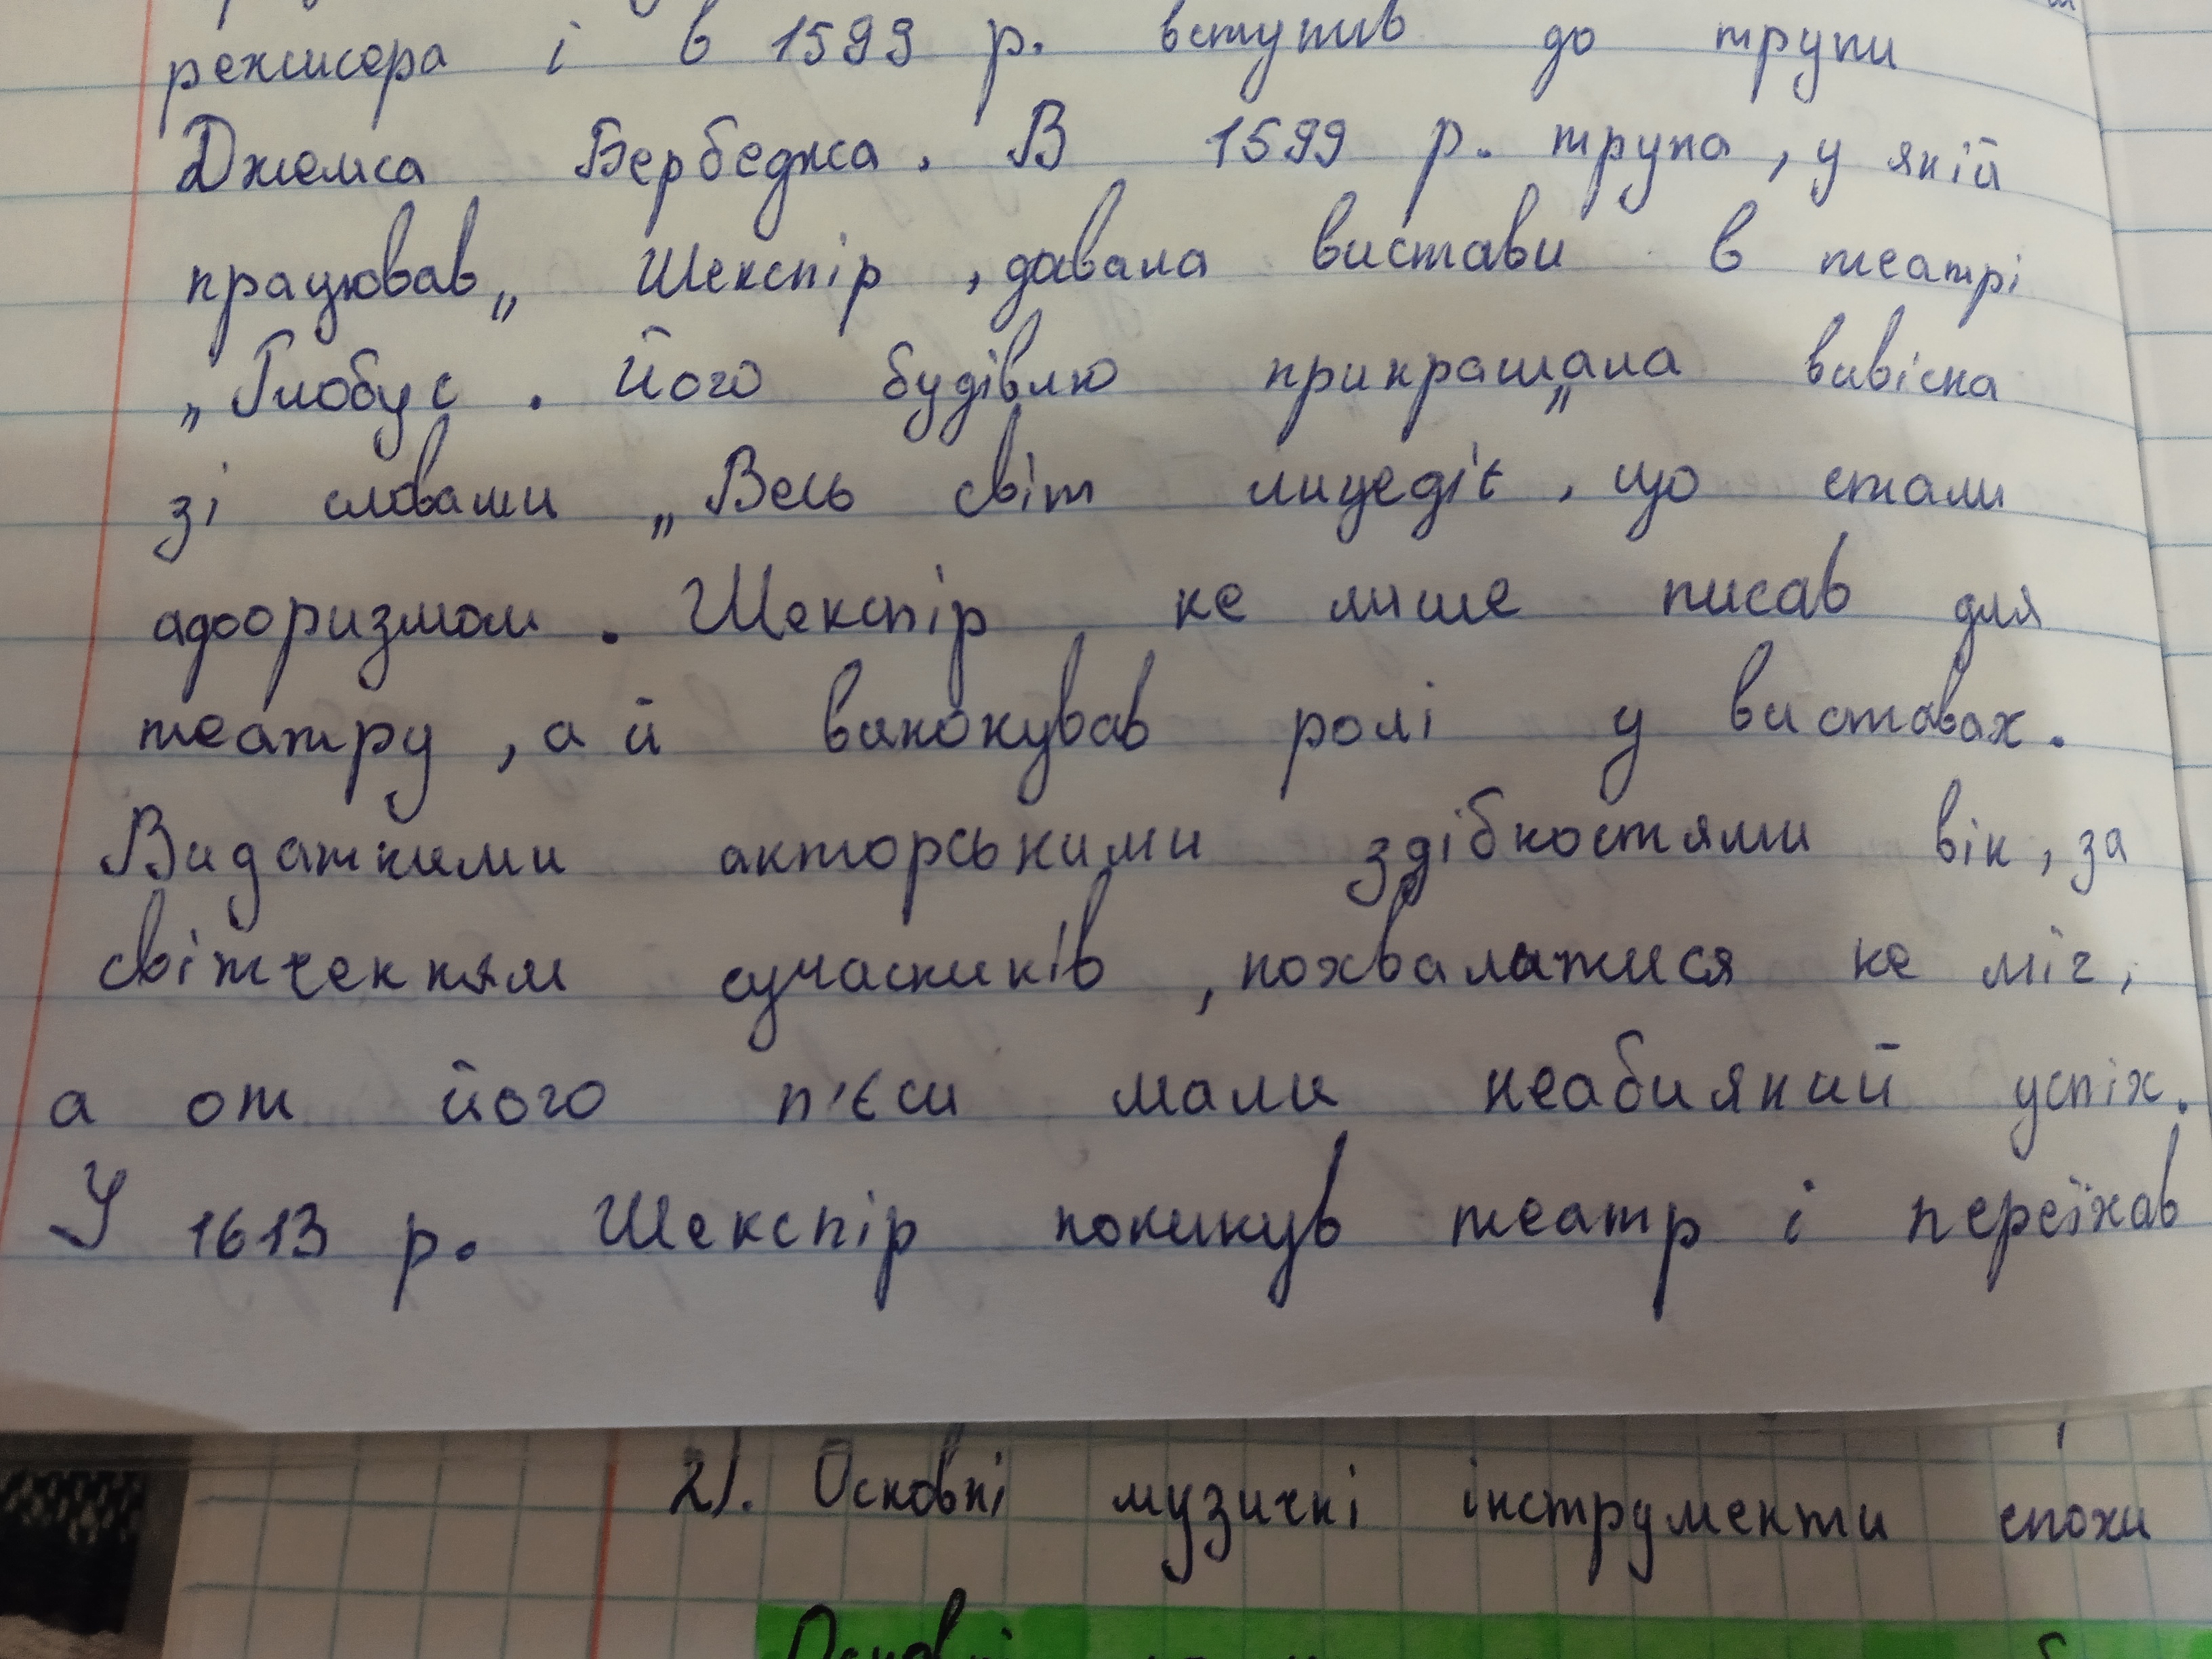 режисера і в 1599 р. вступив до трупи
Джемса Бербеджа. В 1599 р. трупа, у якій
працював„ Шекспір, давала вистави в театрі
„Глобус. Його будівлю прикрашала„ вивіска
зі словами „Весь світ лицедіє, що стали
афоризмом. Шекспір не лише писав для
театру, а й виконував ролі у виставах.
Видатними акторськими здібностями він, за
світченням сучасників, похвалитися не міг,
а от його п'єси мали неабиякий успіх.
У 1613 р. Шекспір покинув театр і переїхав
2). Основні музичні інструменти епохи
Основні